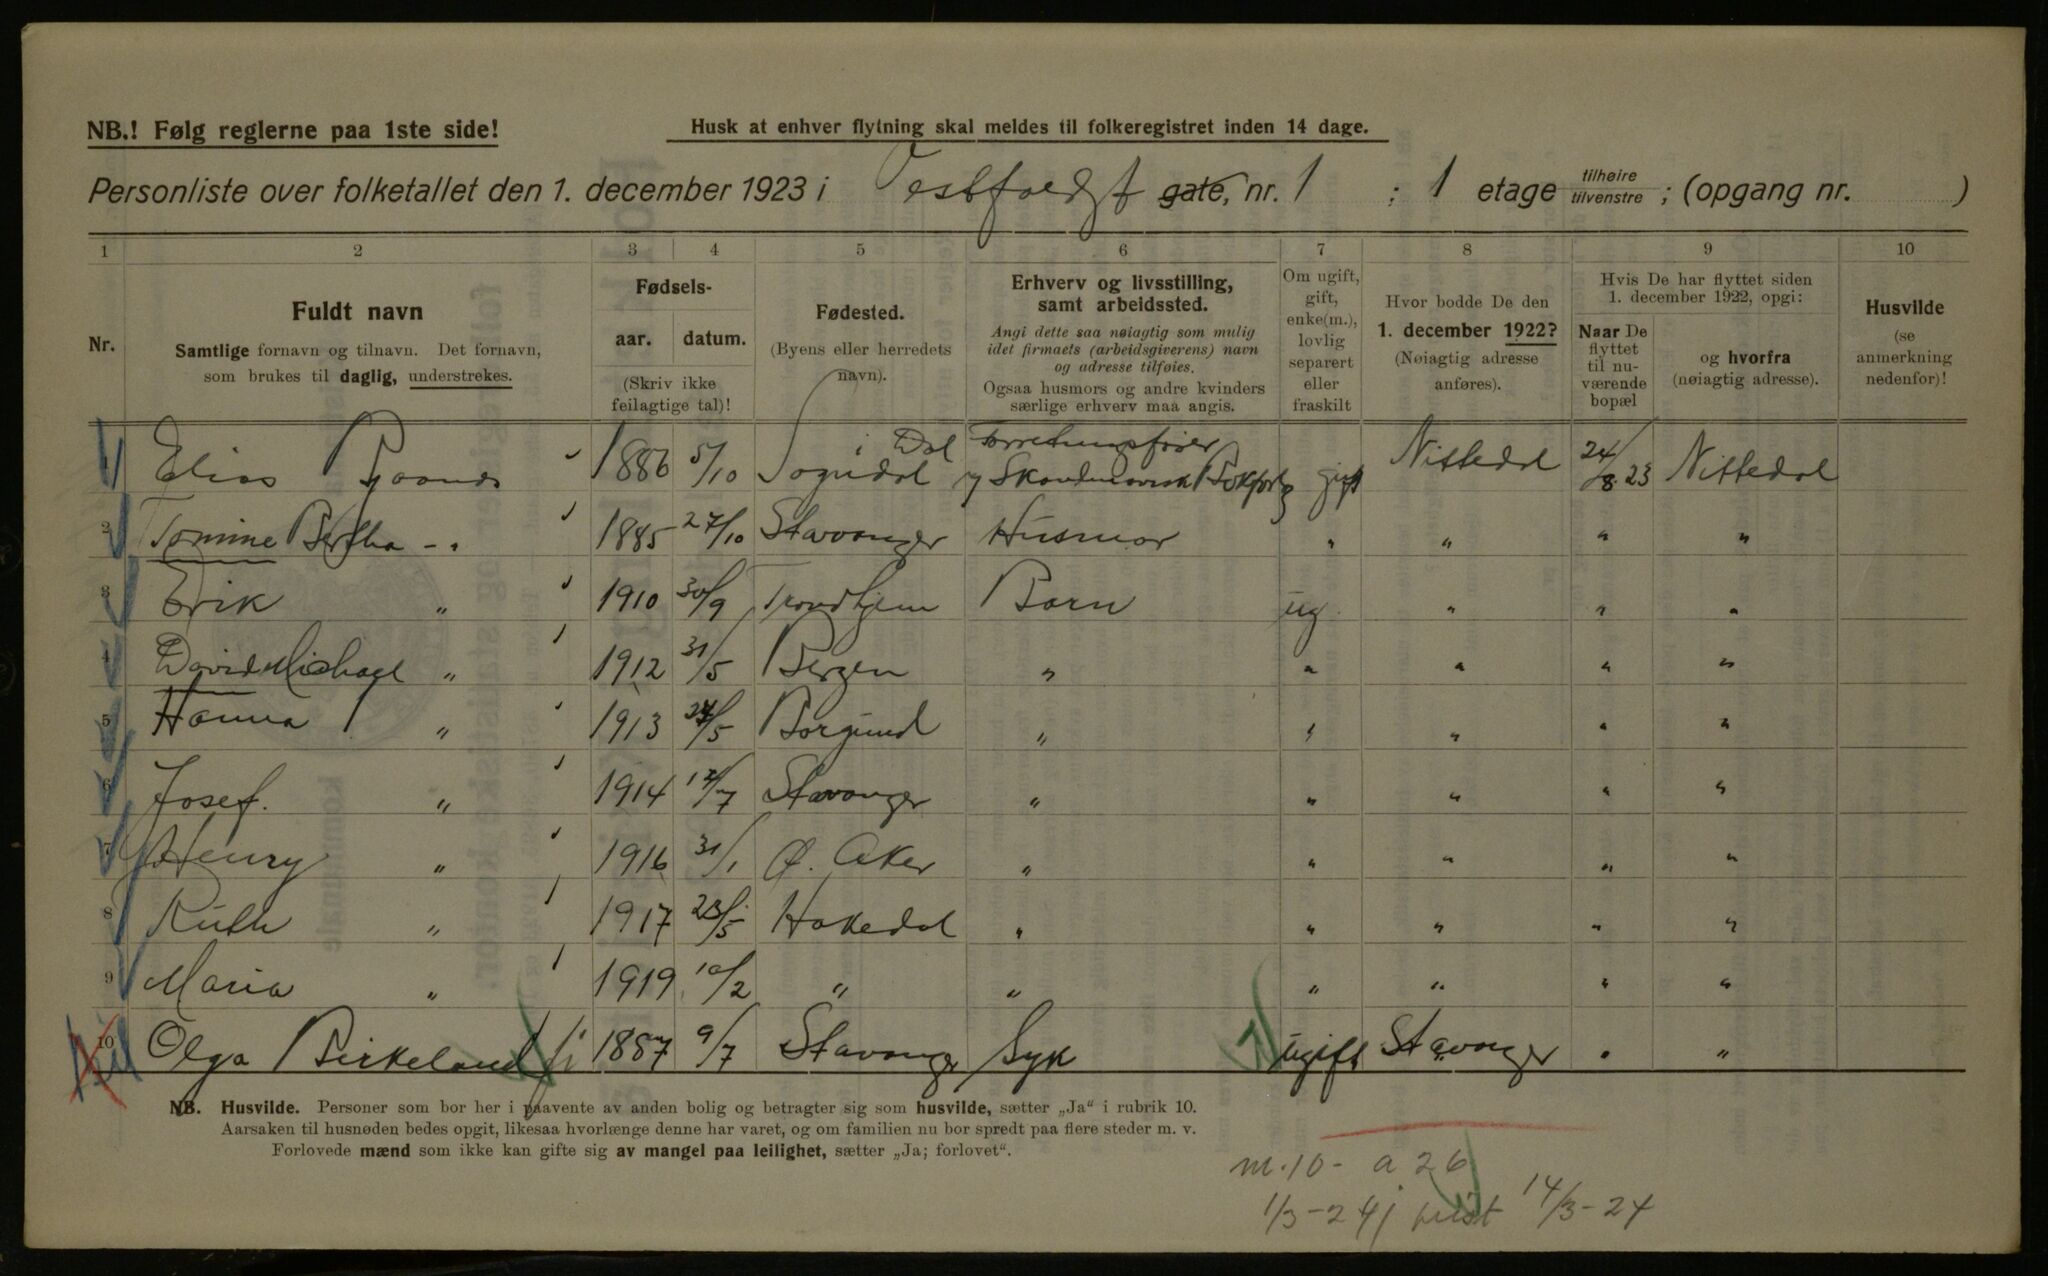 NB.! Følg reglerne paa 1ste side!
Husk at enhver flytning skal meldes til folkeregistret inden 14 dage.
Personliste over folketallet den 1. december 1923 i Vestfoldgt gate, nr. 1 ; 1 etage tilhøire tilvenstre ; (opgang nr. )
1 2 3 4 5 6 7 8 9 10
Nr.
Fuldt navn
Samtlige fornavn og tilnavn. Det fornavn,
som brukes til daglig, understrekes.
Fødsels-
aar. datum.
(Skriv ikke
feilagtige tal)!
Fødested.
(Byens eller herredets
navn).
Erhverv og livsstilling,
samt arbeidssted.
Angi dette saa nøiagtig som mulig
idet firmaets (arbeidsgiverens) navn
og adresse tilføies.
Ogsaa husmors og andre kvinders
særlige erhverv maa angis.
Om ugift,
gift,
enke(m.),
lovlig
separert
eller
fraskilt
Hvor bodde De den
1. december 1922?
(Nøiagtig adresse
anføres).
Hvis De har flyttet siden
1. december 1922, opgi:
Naar De
flyttet
til nu-
værende
bopæl
og hvorfra
(nøiagtig adresse).
Husvilde
(se
anmerkning
nedenfor)!
1 Elias 1886 5/10 Sogndal i Dal Forretningsfører Skandinavisk Bokforlg gift Nittedal 24/8.23 Nittedal
2 Tomine Bertha -„ 1885 27/10 Stavanger Husmor „ „ „ „
3 Erik „ 1910 30/9 Trondhjem Barn ug. „ „ „
4 David Michael „ 1912 31/5 Bergen „ „ „ „ „
5 Hanna „ 1913 /5 Borgund „ „ „ „ „
6 Josef. „ 1914 12/7 Stavanger „ „ „ „ „
7 Henry „ 1916 31/1 Ø. Aker „ „ „ „ „
8 Ruth „ 1917 23/5 Hakedal „ „ „ „ „
9 Maria „ 1919 10/2 „ „ „ „ „ „
10 Olga Birkeland 1887 9/7 Stavanger Syk ugift Stavanger „ „
NB. Husvilde. Personer som bor her i paavente av anden bolig og betragter sig som husvilde, sætter „Ja“ i rubrik 10.
Aarsaken til husnøden bedes opgit, likesaa hvorlænge denne har varet, og om familien nu bor spredt paa flere steder m. v.
Forlovede mænd som ikke kan gifte sig av mangel paa leilighet, sætter „Ja; forlovet“.
m.10- a 26
1/3-24 14/3-24